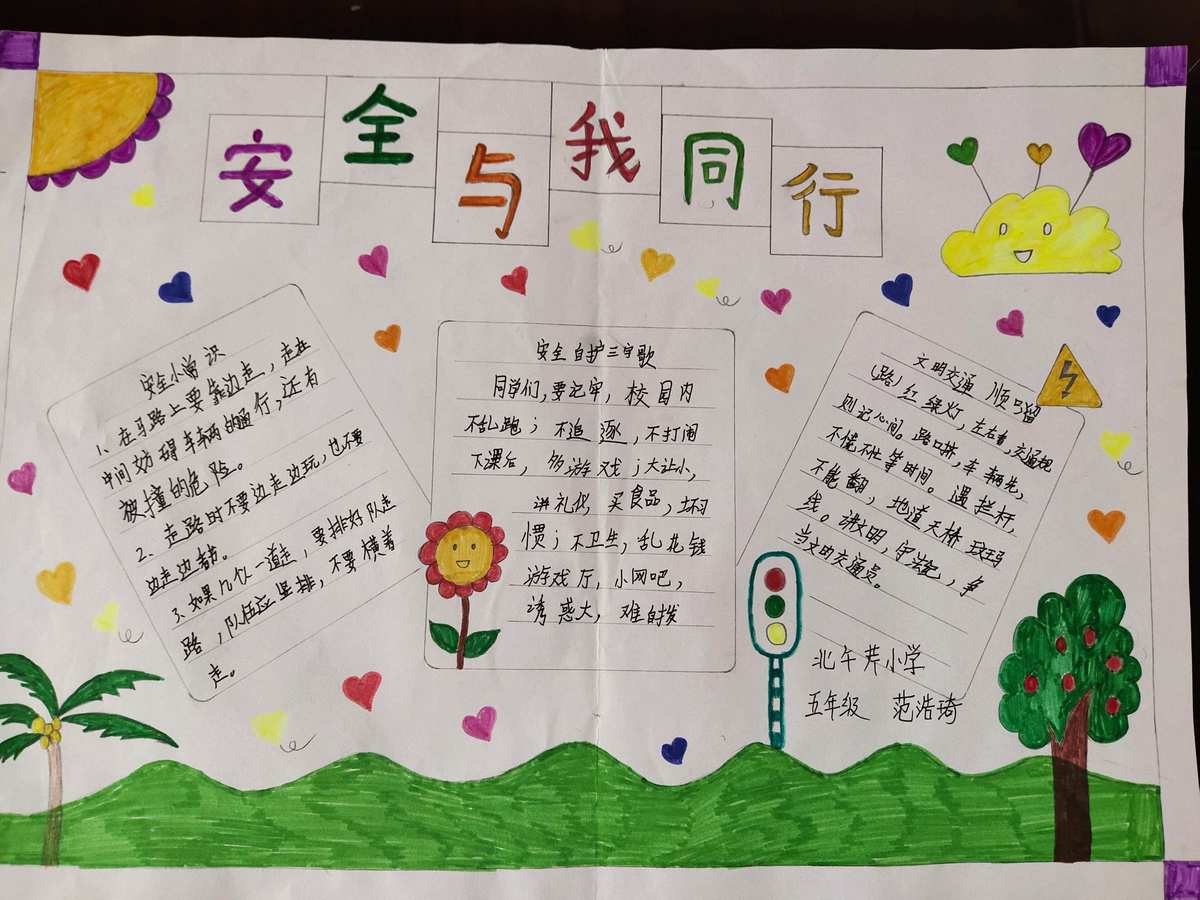 安全与我同行
安全小常识
1、在马路上要靠边走，走在
中间妨碍车辆的通行，还有
被撞的危险。
2、走路时不要边走边玩，也不要
边走边教。
3、如果几个一道走，要排好队走
路，队伍应竖排，不要横着
走。
安全自护三字歌
同学们，要记牢，校园内
不乱跑；不追逐，不打闹
下课后，多游戏；大让小，
讲礼仪，买食品，坏习
惯；不卫生，乱花钱
游戏厅，小网吧，
诱惑大，难自拔
文明交通 顺口溜
(路)红绿灯，左右看，交通规
则记心间。路口哄，车辆先，
不慌不忙等时间。遇拦杆，
不能翻，地道天桥
线。讲文明，守法纪，争
当文明交通员。
北午芹小学
五年级 范浩琦